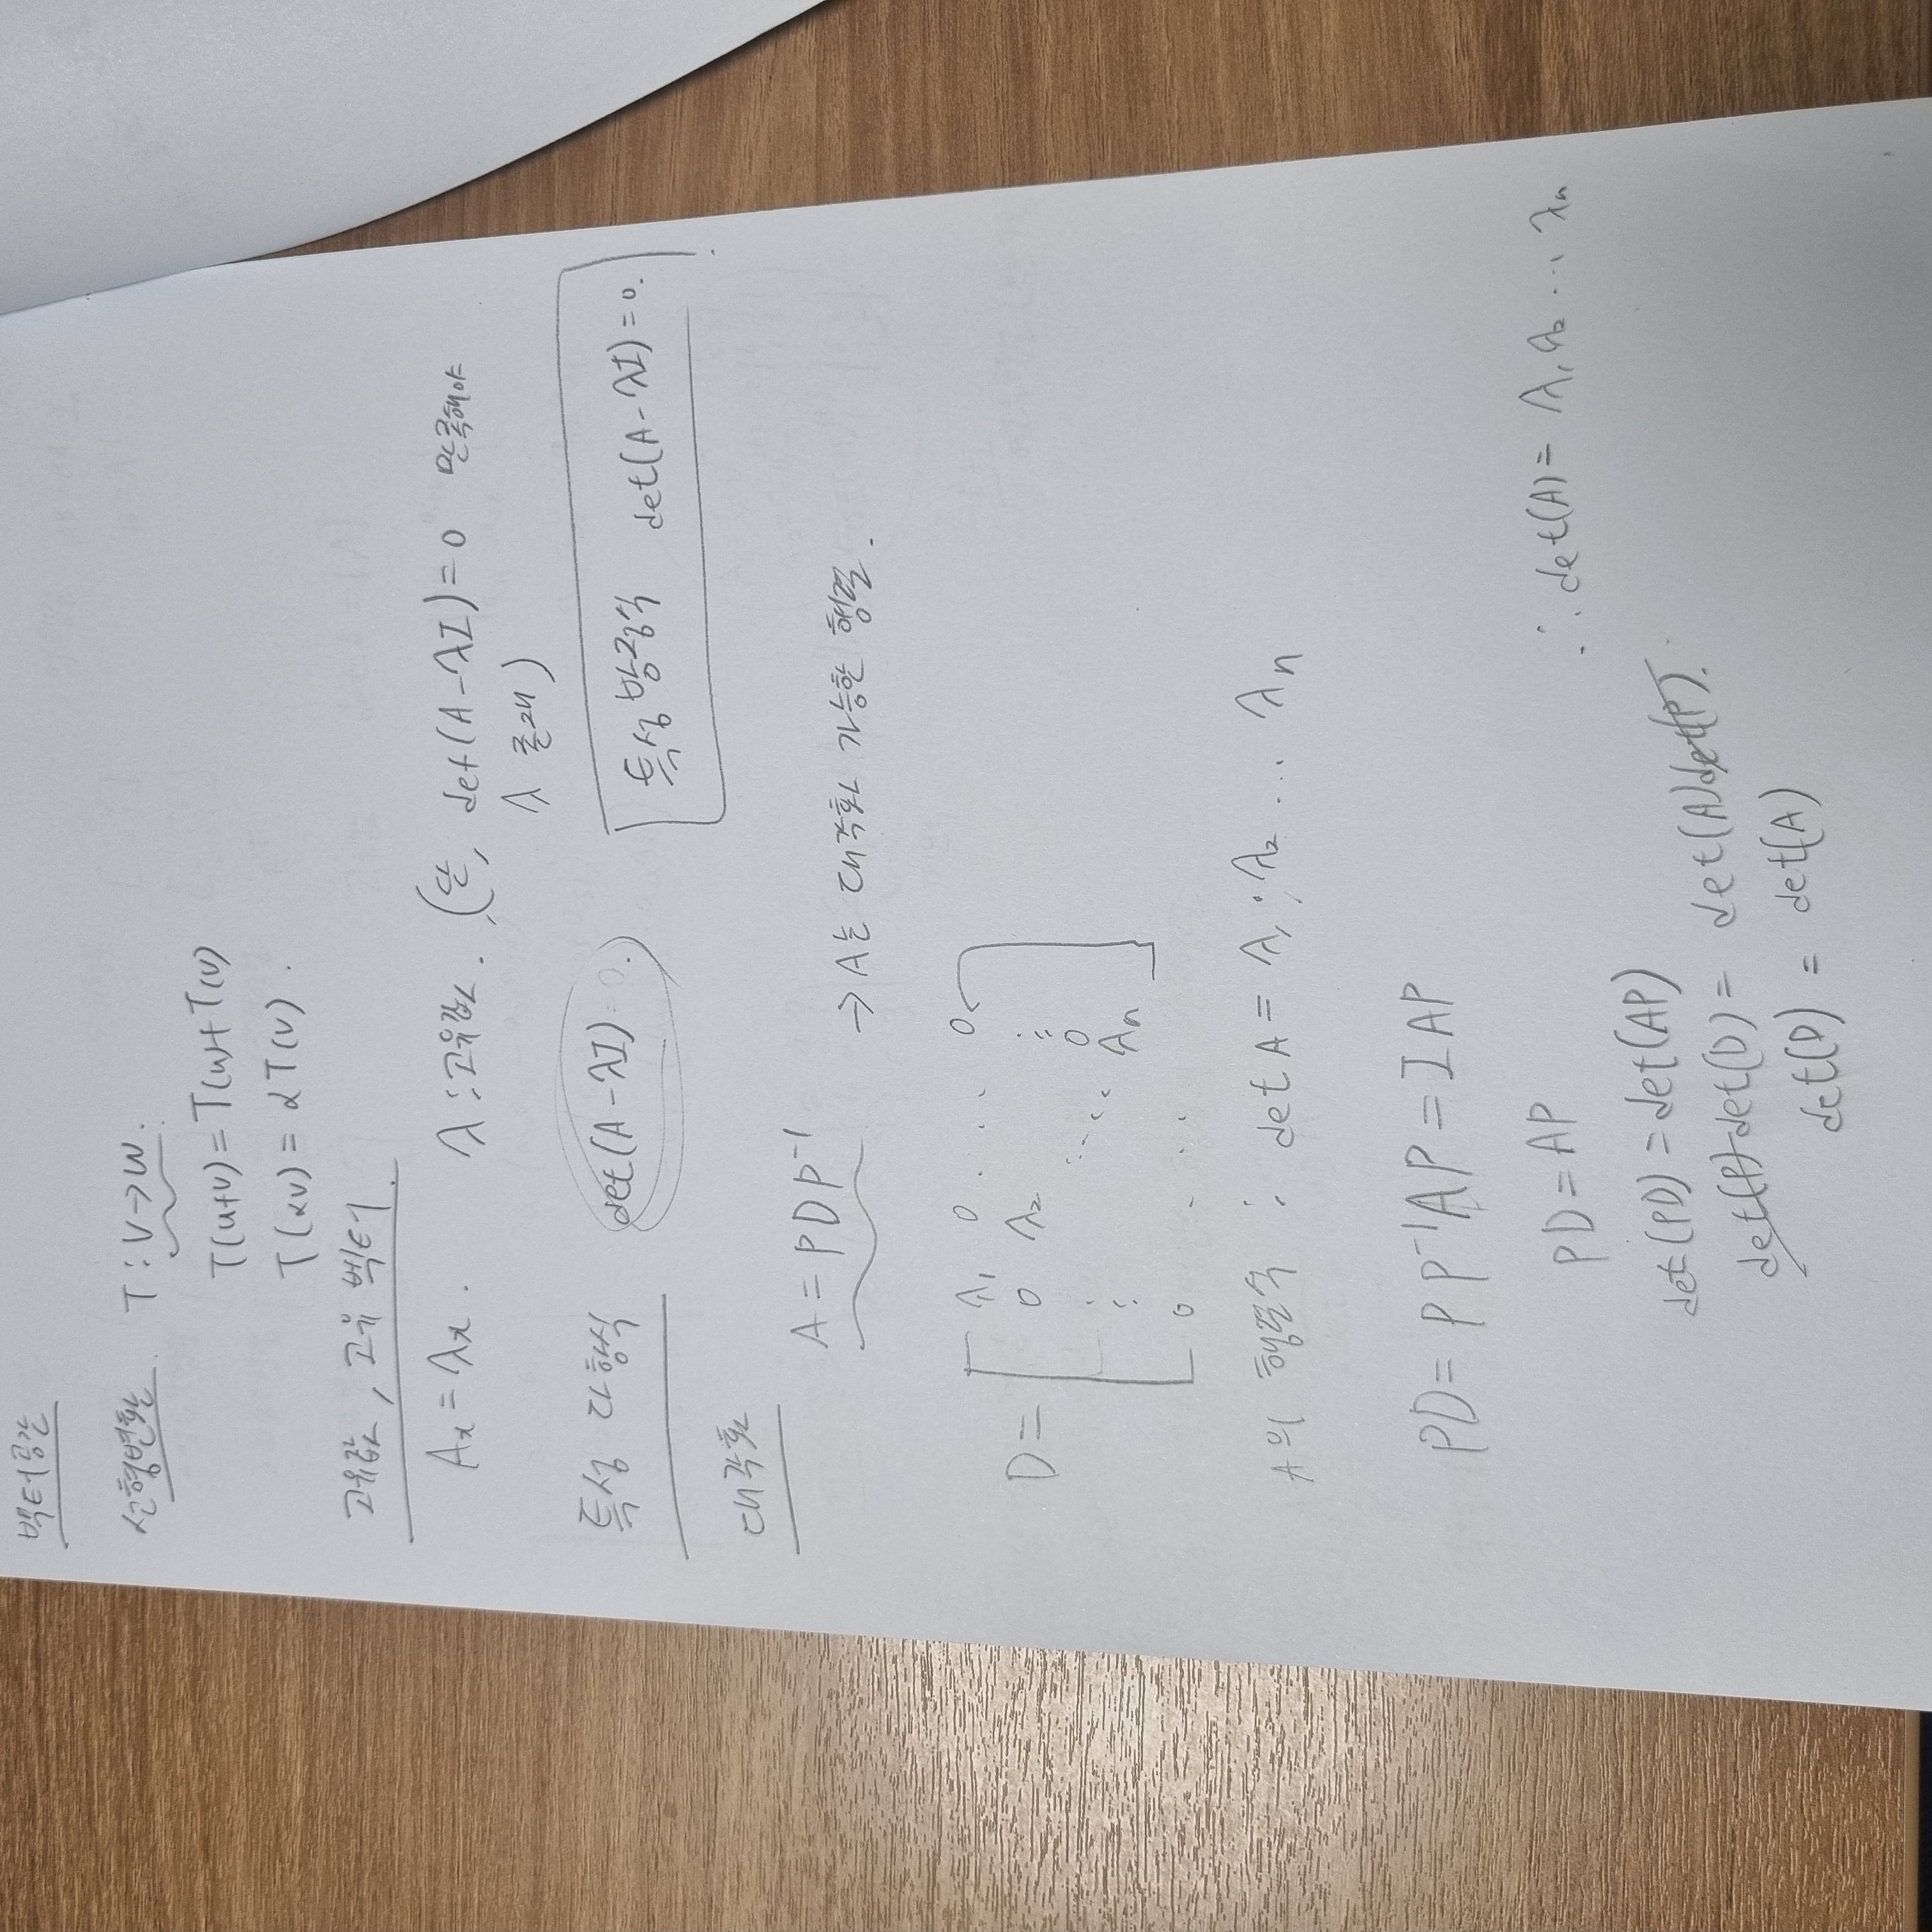 벡터공간
선형변환. T : V → W.
T(u+v) = T(u) + T(v)
T(αv) = αT(v).
고유값, 고유 벡터.
Ax = λx. λ : 고유값. (단, det(A - λI) = 0 만족해야
λ 존재)
특성 다항식 det(A - λI). 특성 방정식 det(A - λI) = 0.
대각화
A = PDP⁻¹
→ A는 대각화 가능한 행렬.
D = [ λ₁ 0 . . . . 0
0 λ₂ . :
. ⋱ 0
: λn
0 . . . ]
A의 행렬식 : det A = λ₁ · λ₂ ... λn
PD = PP⁻¹AP = IAP
PD = AP
∴ det(A) = λ₁ λ₂ ... λn
det(PD) = det(AP)
det(P)det(D) = det(A)det(P).
det(D) = det(A)